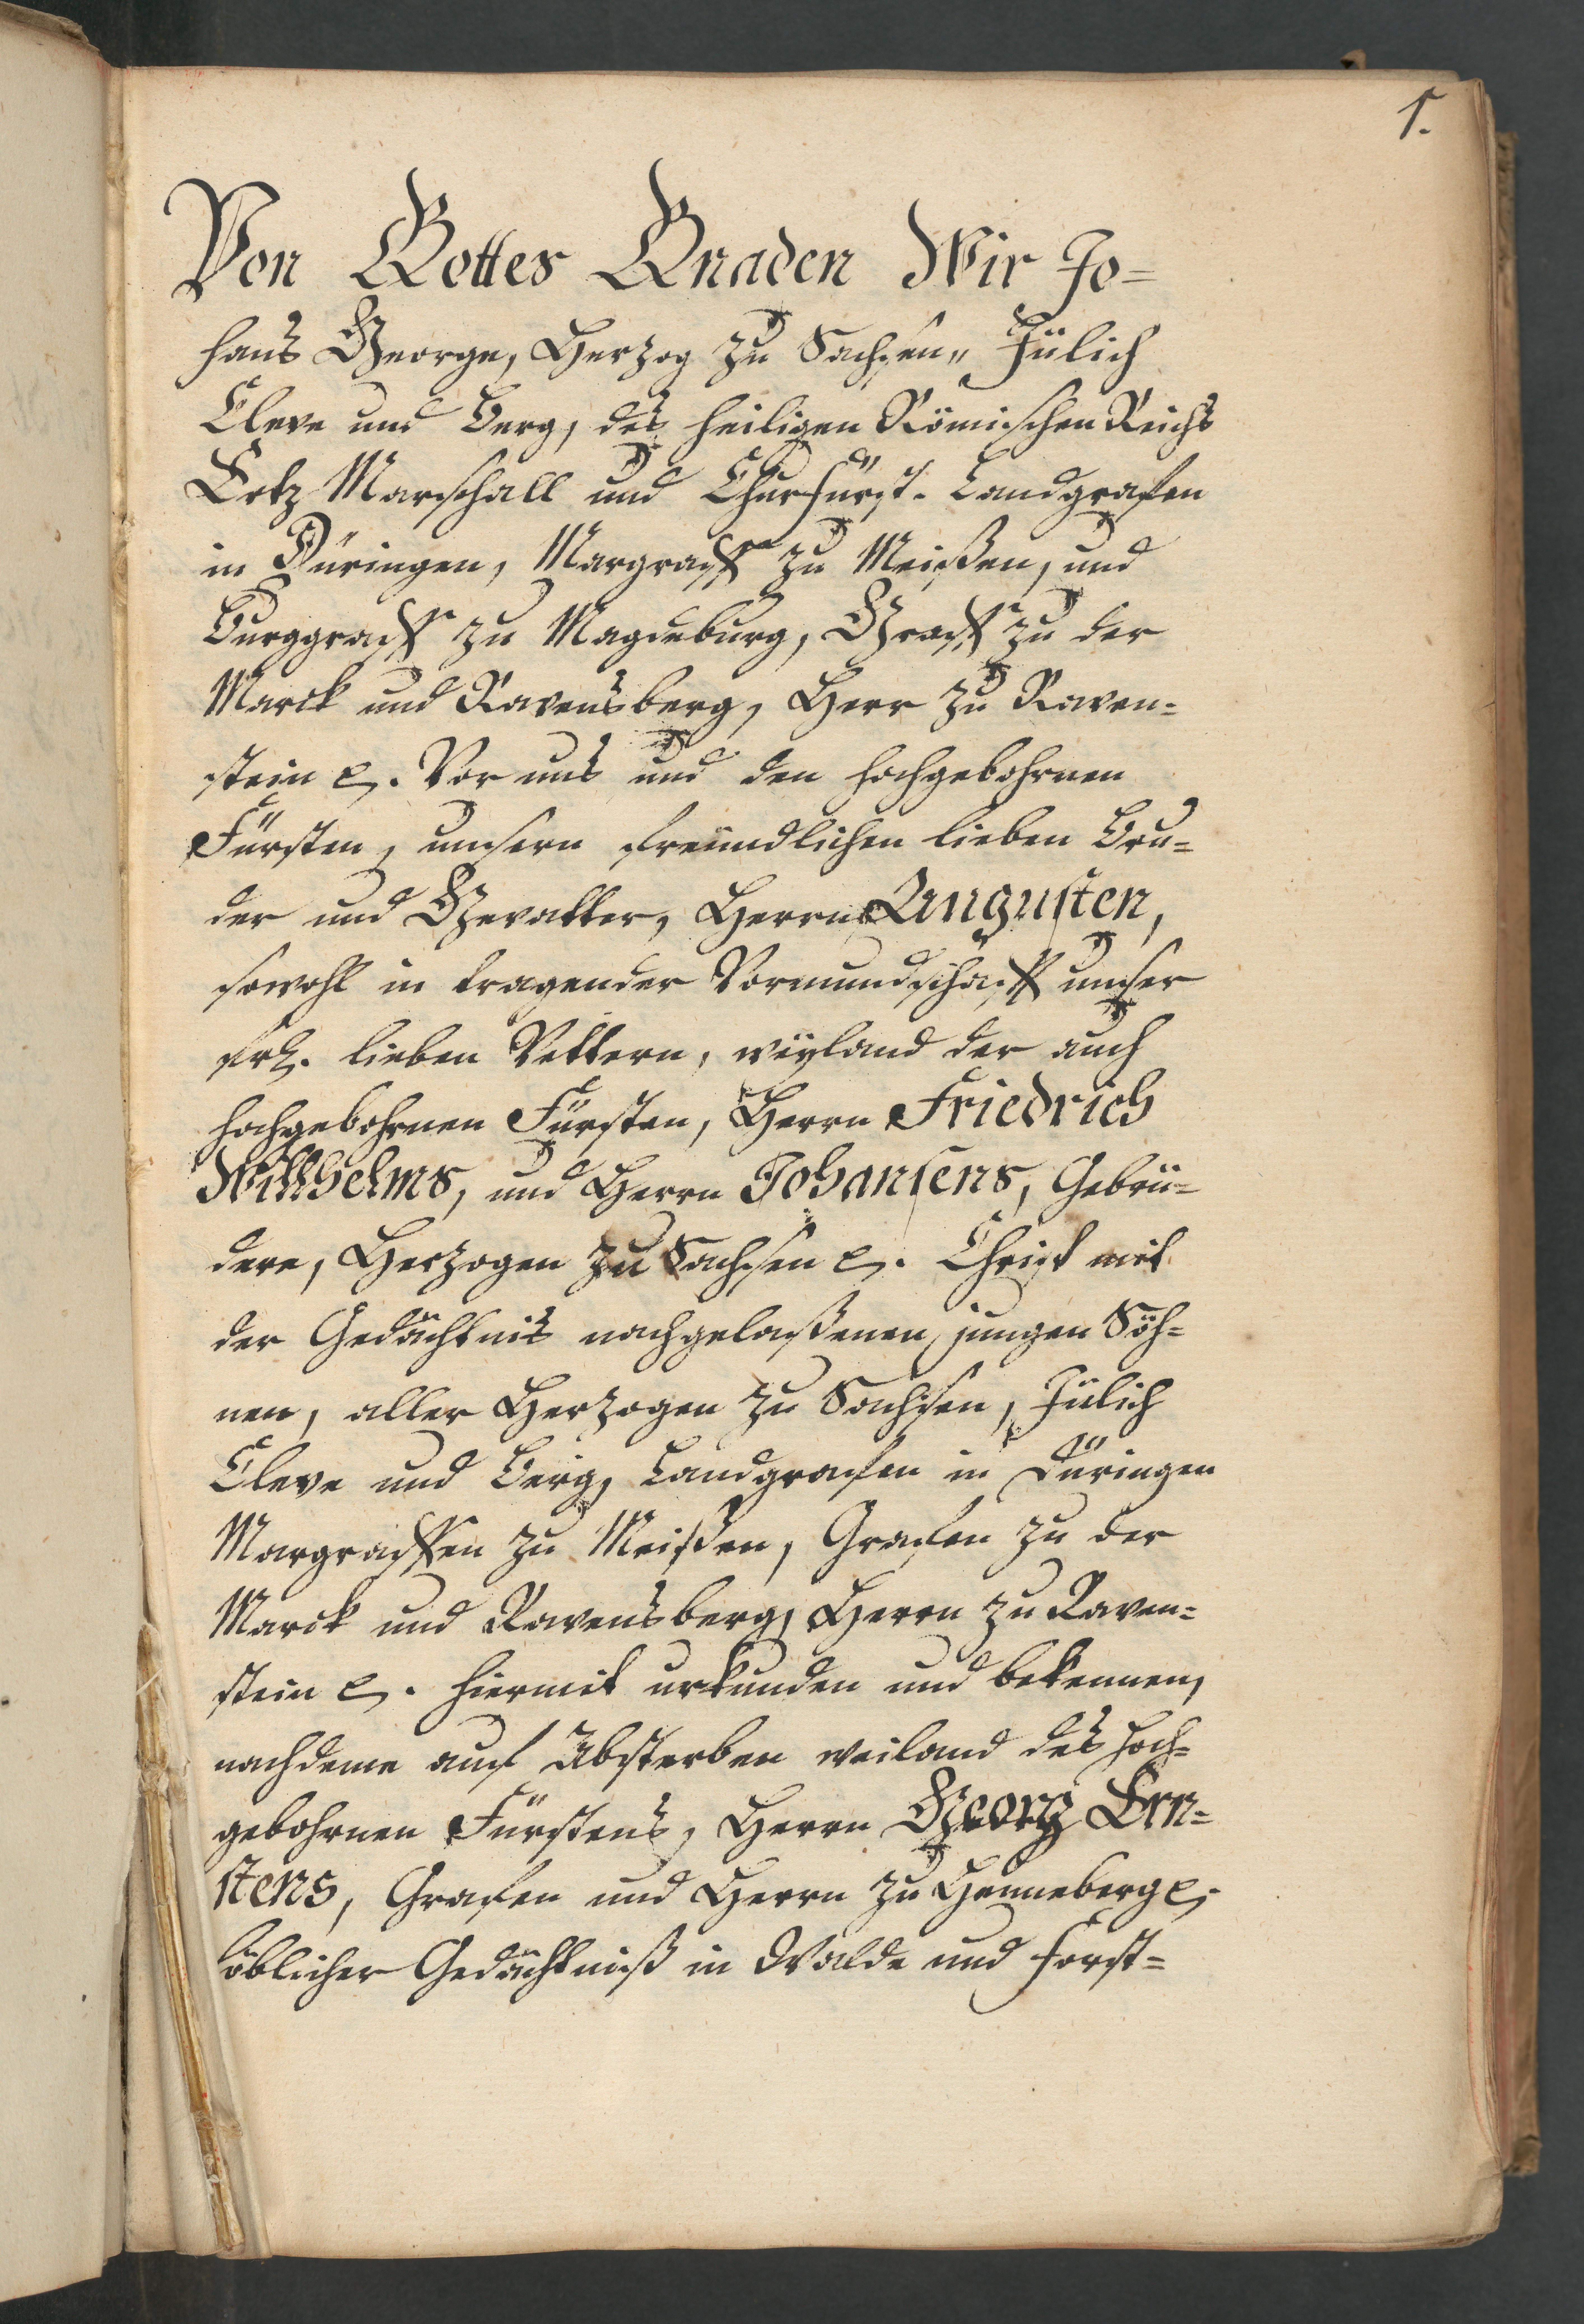 1.
Von Gottes Gnaden Wir Jo=
hans George, Herzog zu Sachsen, Jülich
Cleve und Berg, des heiligen Römischen Reichs
Ertz Marschall und Churfürst. Landgrafen
in Düringen, Margraff zu Meißen, und
Burggraff zu Magdeburg, Graff zu der
Marck und Ravensberg, Herr zu Raven=
stein . Vor uns und den hochgebohrnen
Fürsten, unsern freündlichen lieben Bru=
der und Gevatter, Herrn Augusten,
sowohl in tragender Vormundschafft unser
frl. lieben Vettern, weyland der auch
hochgebohrnen Fürsten, Herrn Friedrich
Willhelms, und Herrn Johansens, Gebrü=
dere, Herzogen zu Sachsen . Christ mil
der Gedächtnis nachgelaßenen jungen Söh=
nen, aller Herzogen zu Sachsen, Jülich
Cleve und Berg, Landgrafen in Düringen
Margraffen zu Meißen, Grafen zu der
Marck und Ravensberg, Herrn zu Raven=
stein . hiermit urkunden und bekennen,
nachdeme auf Absterben weiland des Hoch=
gebohrnen Fürstens, Herrn Georg Ern=
stens, Grafen und Herrn zu Henneberg .
löblicher Gedächtniß in Walde und Forst=